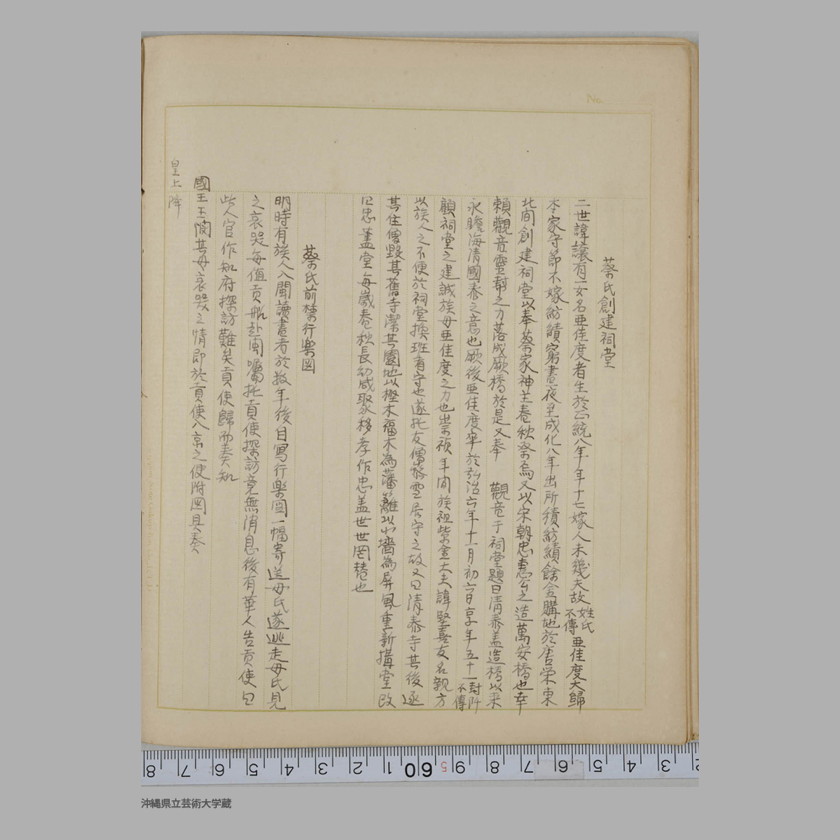 蔡氏創建祠堂
二世諱讓有一女名亜佳度者生於正統八年年十七嫁人未幾夫故姓氏不傳亜佳度大歸
本家守節不嫁紡績窮晝夜至成化八年出所積紡績餘金購地於唐栄東
北向創建祠堂以奉蔡家神主春秋祭焉又以宋朝忠惠公之造萬安橋也幸
賴觀音靈鄣之力落成厥橋於是又奉 觀音于祠堂題曰清泰盖造橋以来
永瞻海清國泰之意也厥後亜佳度卒於弘治六年十一月初六日享年五十一封門不傳
顧祠堂之建誠族母亜佳度之力也崇禎年間族祖紫金大夫諱堅喜友名親方
以族人之不便於祠堂換班看守也遂托友僧居守之故又曰清泰寺其後逐
其住僧毀其舊寺潔其園地以樫木福木為藩籬以小墻為屏風重新構堂改
曰忠盡堂每歲春秋長幼咸聚移孝作忠盖世世罔替也
蔡氏前積行樂図
明時有族人入閩讀書者於数年後自寫行樂図一幅寄送母氏遂逃走母氏見
之哀哭每值貢船赴閩囑托貢使探訪竟無消息後有華人告貢使曰
此人官作知府探訪難矣貢使歸而奏知
國王王閔其母哀哭之情即於貢使入京之便附図具奏
皇上降
No.
8 7 6 5 4 3 2 1 60 9 8 7 6 5 4 3
沖縄県立芸術大学蔵